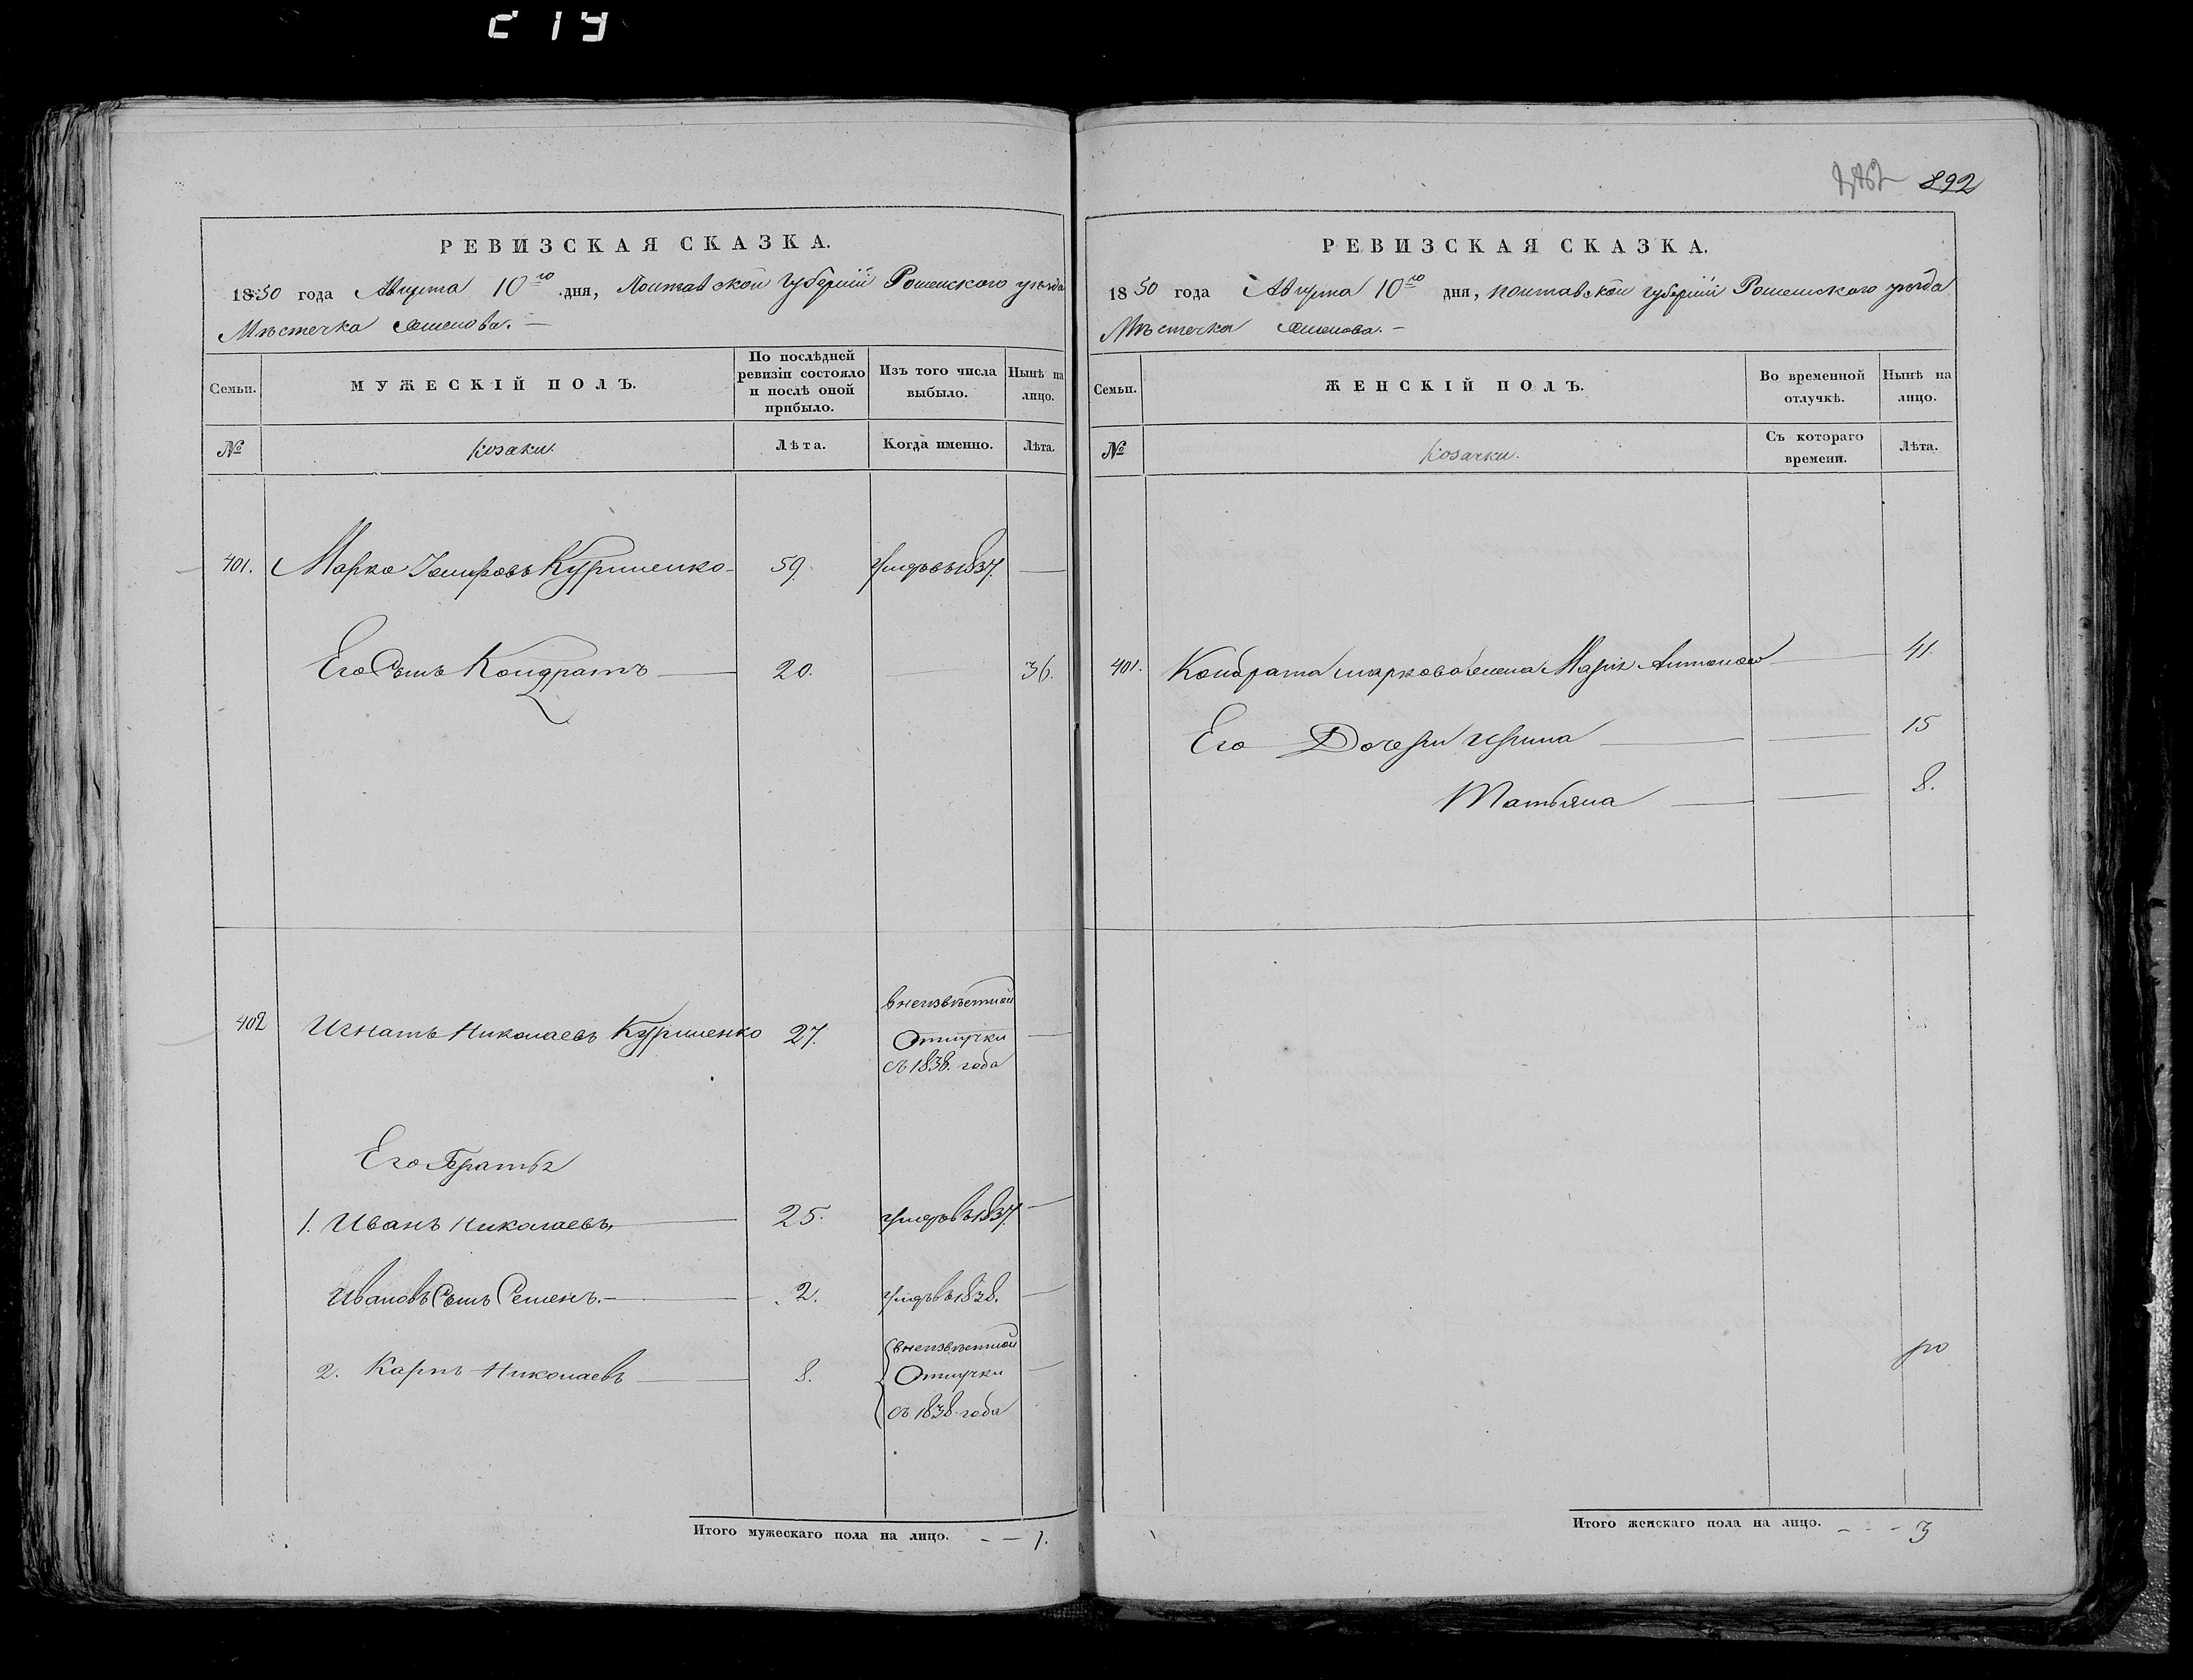 219
892
РЕВИЗСКАЯ СКАЗКА.
1850 года Августа 10го дня, Полтавской губернии Роменскаго уезда
Местечка
Семьи.
МУЖЕСКІЙ ПОЛЪ.
По послѣдней ревизіи состояло и послѣ оной прибыло.
Изъ того числа выбыло.
Нынѣ на лицо.
№
козаки.
Лѣта.
Когда именно.
Лѣта.
401. Марко Куриленко 59. умеръ въ 1837.
Его Сынъ Кондратъ 20. 36.
402 Игнатъ Николаевъ Куриленко 27. в неизвестной Отлучки съ 1838. года
Его Братья
1. Иванъ Николаевъ 25. умеръ въ 1837.
Ивановъ Сынъ Семенъ. 2. умеръ въ 1838.
2. Карпъ Николаевъ 8. в неизвестной Отлучки съ 1838. года
Итого мужескаго пола на лицо. 1.
РЕВИЗСКАЯ СКАЗКА.
1850 года Августа 10го дня, полтавской губернии Роменскаго уезда
Местечка
Семьи.
ЖЕНСКІЙ ПОЛЪ.
Во временной отлучкѣ.
Нынѣ на лицо.
№
козачки.
Съ котораго времени.
Лѣта.
401. Кондрата Маркова жена Марія Антонова 41.
Его Дочери Ирина 15
Татьяна 8.
Итого женскаго пола на лицо. 3